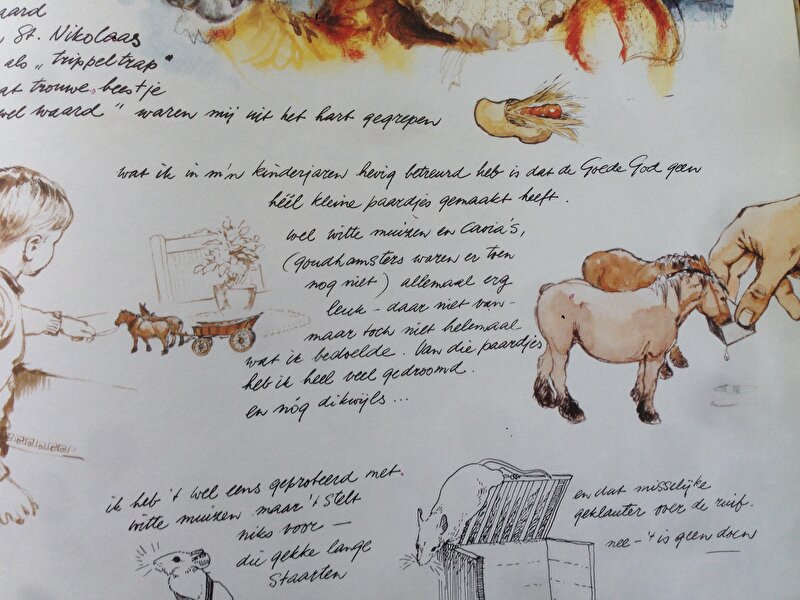 aard
St. Nikolaas
als „trippeltrap"
at trouwe beestje
wel waard" waren mij uit het hart gegrepen
wat ik in m'n kinderjaren hevig betreurd heb is dat de Goede God geen
héél kleine paardjes gemaakt heeft.
wel witte muizen en Cavia's,
(goudhamsters waren er toen
nog niet) allemaal erg
leuk - daar niet van -
maar toch niet helemaal
wat ik bedoelde. Van die paardjes
heb ik heel veel gedroomd.
en nóg dikwijls...
ik heb 't wel eens geprobeerd met
witte muizen maar 't stelt
niks voor —
die gekke lange
staarten
en dat misselijke
geklauter over de ruif.
nee - 't is geen doen